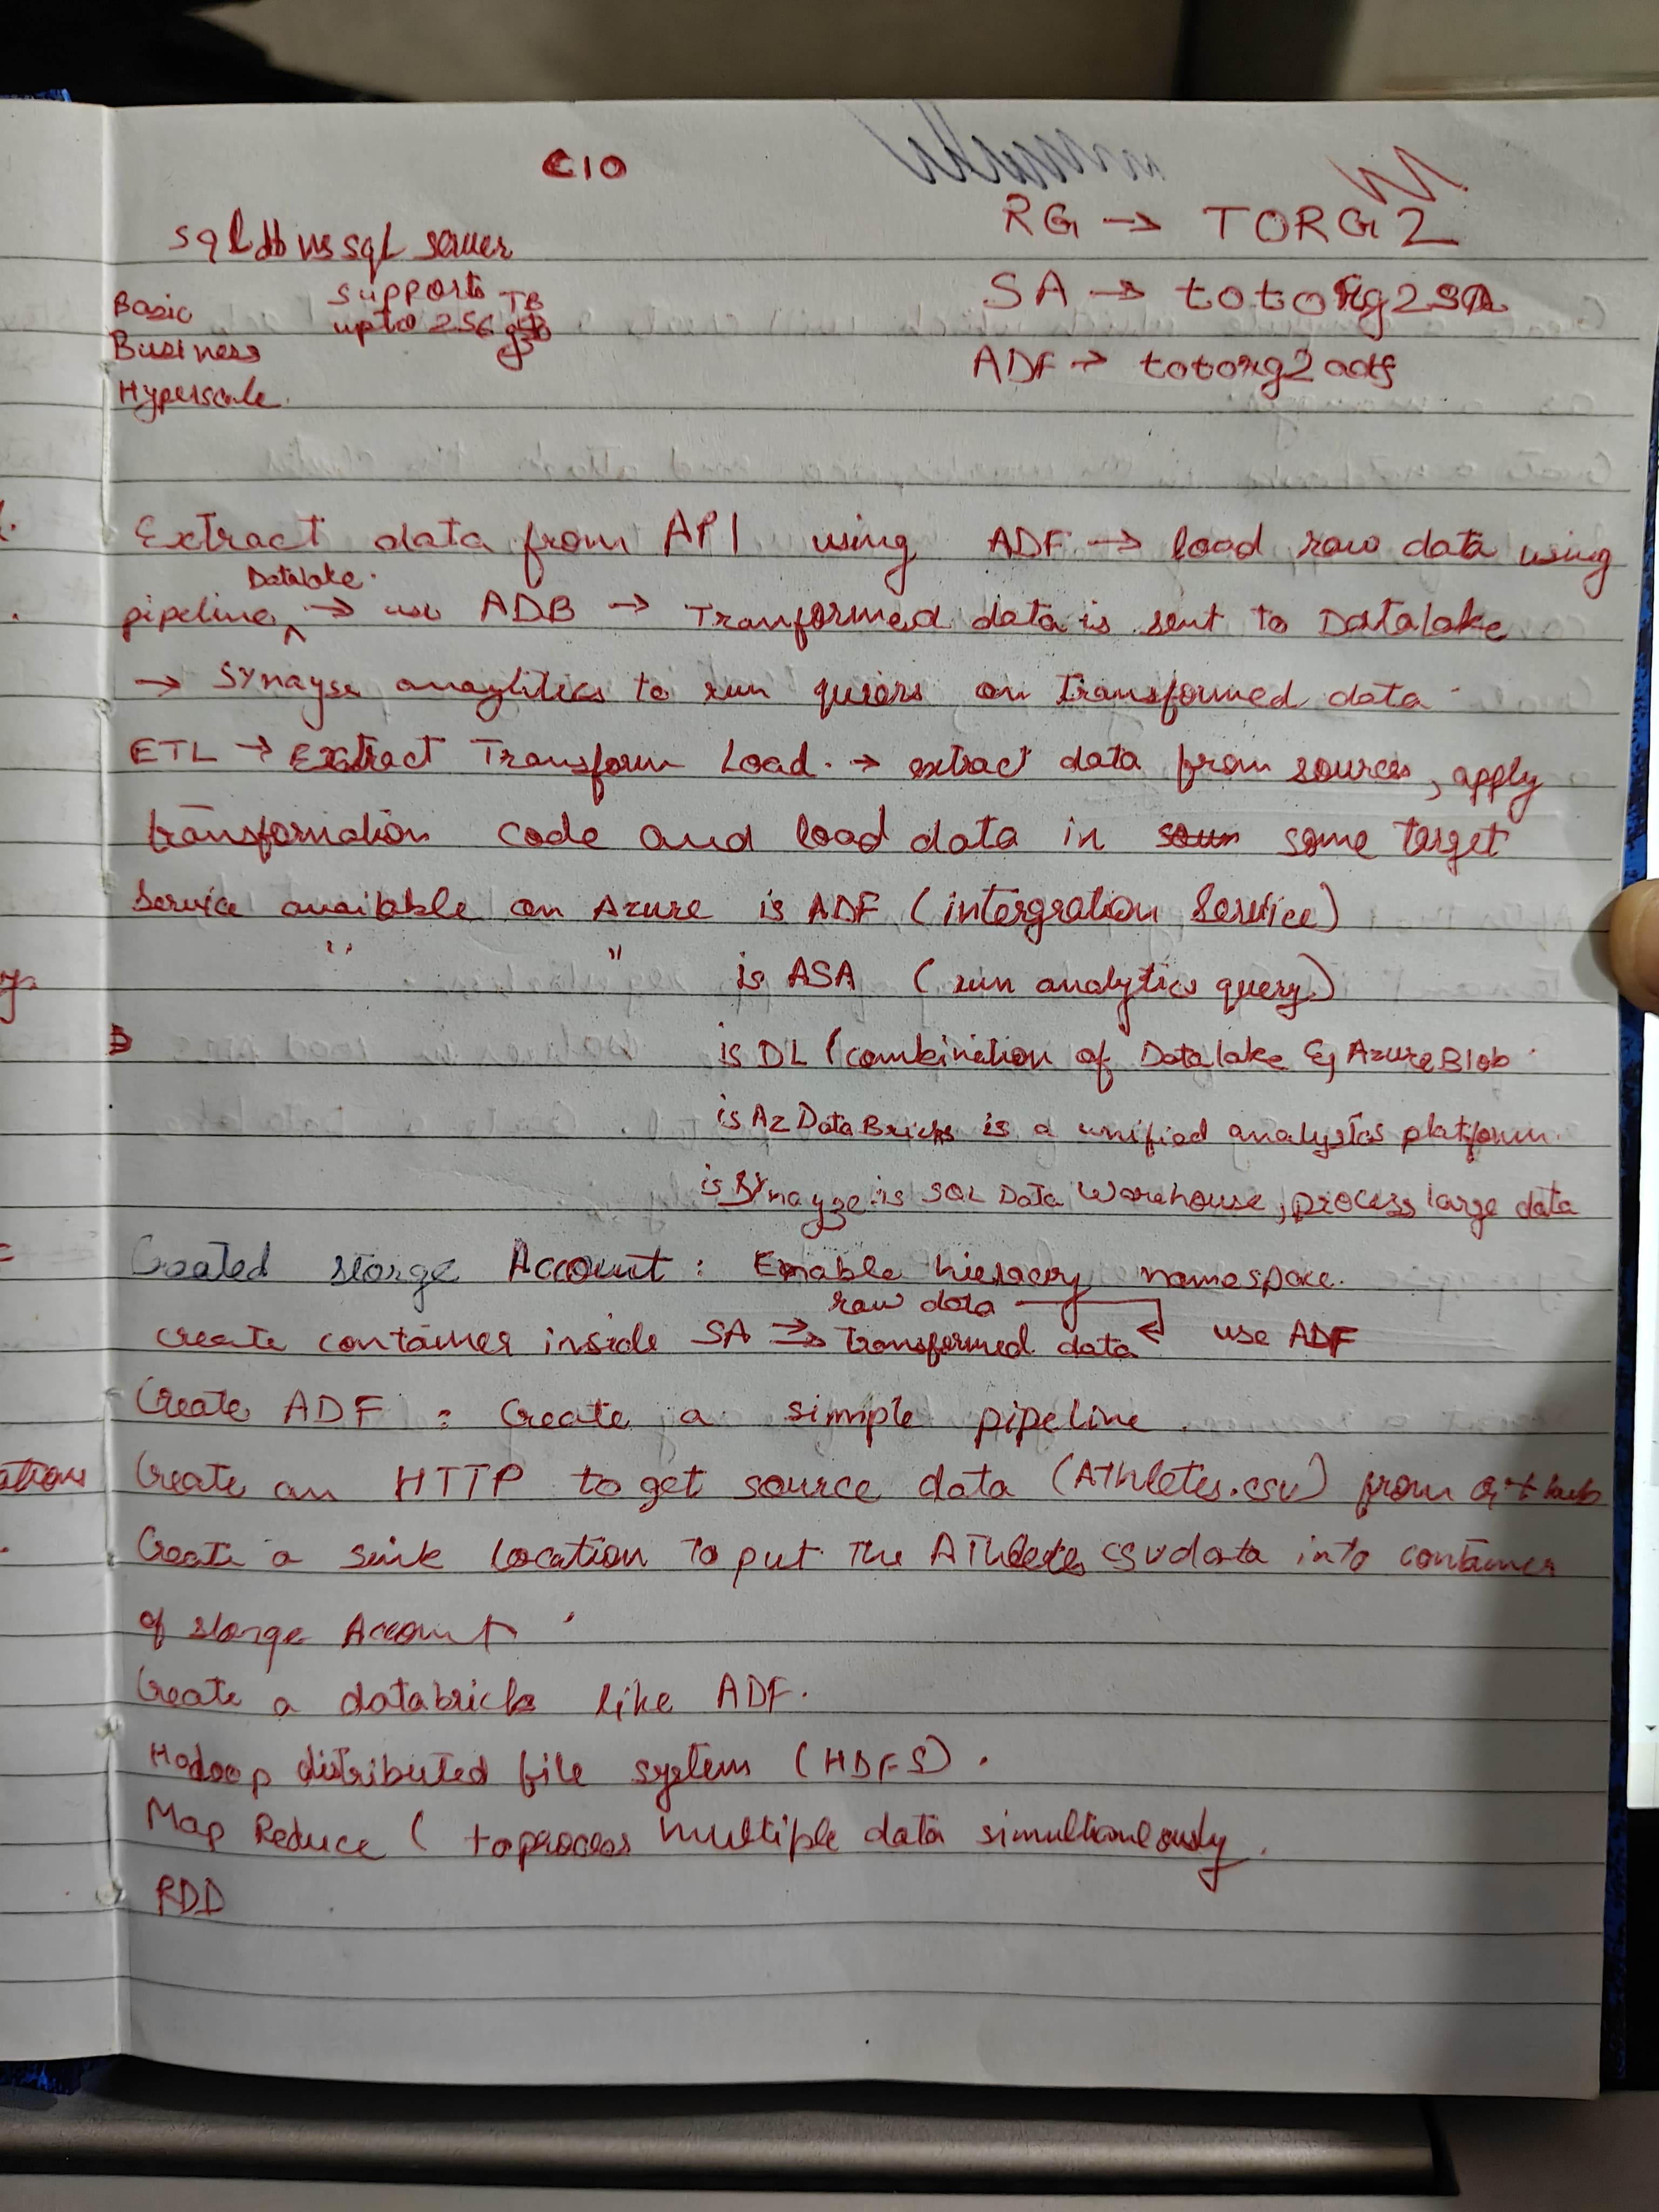 C10
RG → TORG2
sql db vs sql server
SA → totorg2sa
Basic supports TB
upto 256
Business
ADF → totorg2adf
Hyperscale.
Extract data from API using ADF → load raw data using
Datalake.
pipeline → use ADB → Transformed data is sent to Datalake
→ Synayse anaylitics to run quiers on Transformed data
ETL → Extract Transform Load. → extract data from sources, apply
transformation code and load data in some target
Service available on Azure is ADF (intergration Service)
" " is ASA (run analytics query.)
is DL (combination of Datalake & Azure Blob
is Az DataBricks is a unified analystcs platform.
is Synayze is SQL Data Warehouse, process large data
Created storge Account : Enable hieracry namespace.
raw data
create container inside SA ⇒ Transformed data use ADF
Create ADF : Create a simple pipeline.
Create an HTTP to get source data (Athletes.csv) from github
Create a sink location to put the Athletes csv data into container
of storge Account
Create a databricks like ADF.
Hadoop distributed file system (HDFS).
Map Reduce ( to process multiple data simultioneously.
RDD